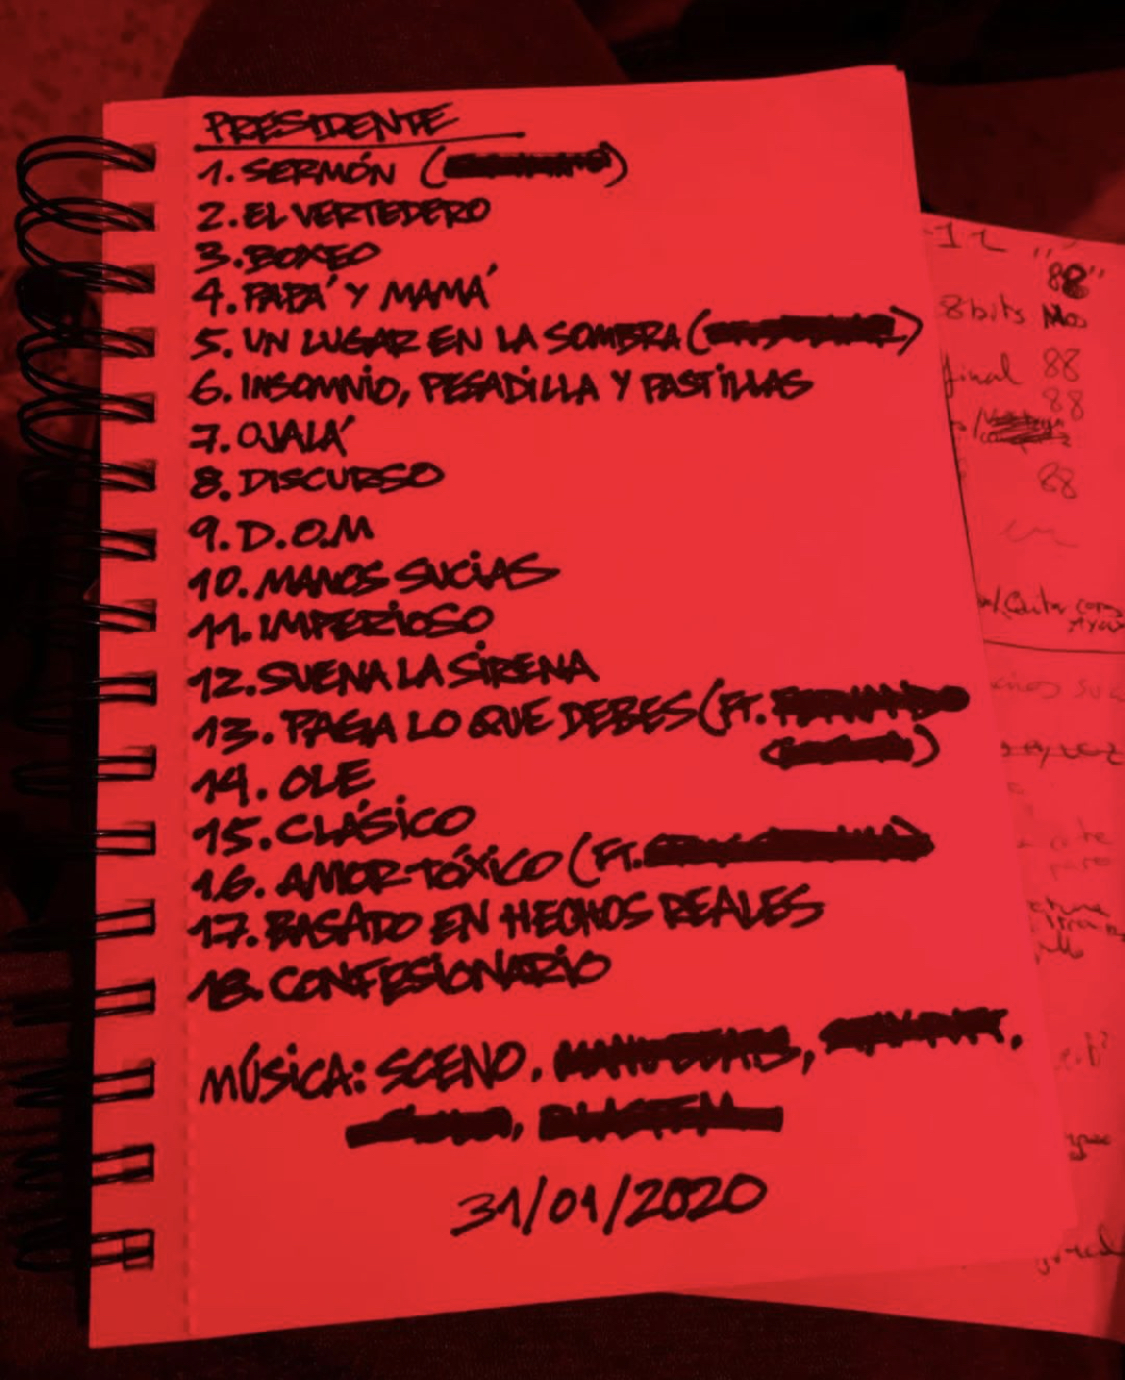 PRESIDENTE
1. SERMÓN (
2. EL VERTEDERO
3. BOXEO
4. PAPÁ Y MAMÁ
5. UN LUGAR EN LA SOMBRA (
6. INSOMNIO, PESADILLA Y PASTILLAS
7. OJALÁ
8. DISCURSO
9. D.O.M
10. MANOS SUCIAS
11. IMPERIOSO
12. SUENA LA SIRENA
13. PAGA LO QUE DEBES (FT.
14. OLE
15. CLÁSICO
16. AMOR TÓXICO (FT.
17. BASADO EN HECHOS REALES
18. CONFESIONARIO
MÚSICA: SCENO,
31/01/2020
88"
8bits Mas
final 88
88
88